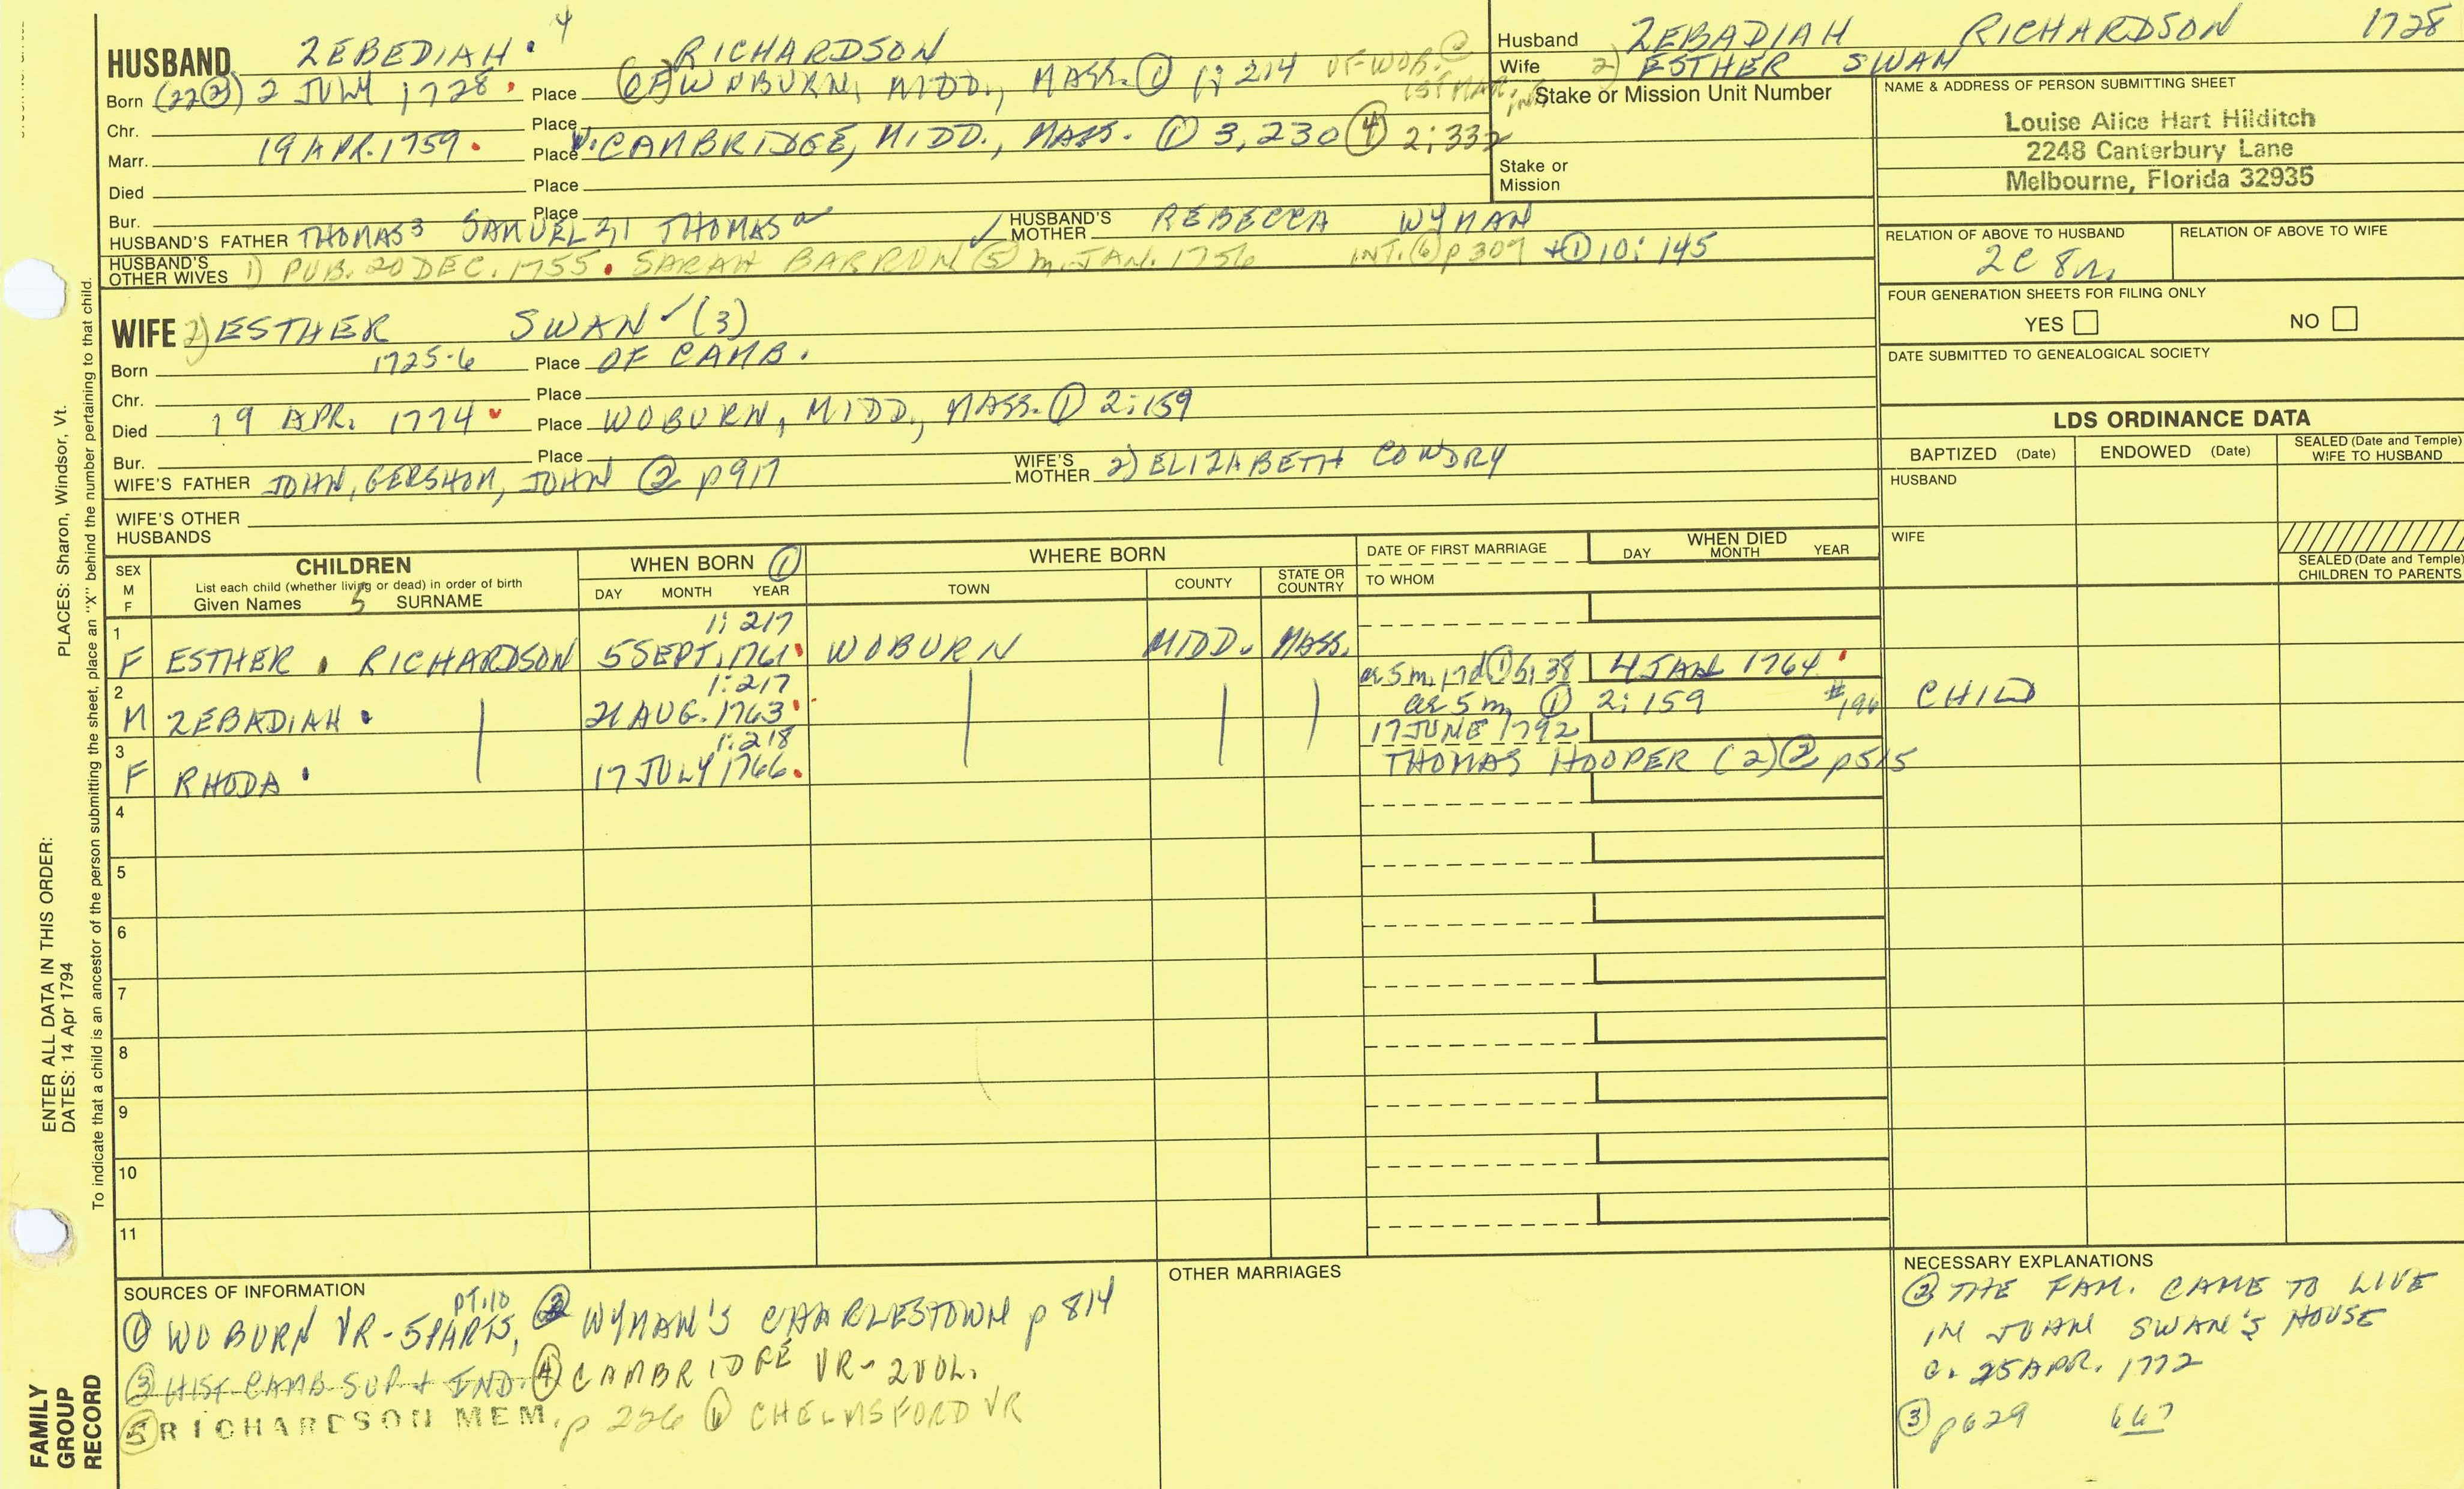 HUSBAND ZEBEDIAH 4 RICHARDSON
Born (22②) 2 JULY 1728 Place WOBURN, MIDD., MASS. ① 1:214 OF WOB. ② 1ST MAR. int
Chr. Place
Marr. 19 APR. 1759 Place CAMBRIDGE, MIDD., MASS. ① 3,230 ④ 2:332
Died Place
Bur. Place
HUSBAND'S FATHER THOMAS3 SAMUEL 2,1 THOMAS HUSBAND'S MOTHER REBECCA WYMAN
HUSBAND'S OTHER WIVES 1) PUB. 20 DEC. 1755. SARAH BARRON ⑤ m. JAN. 1756 INT. ⑥ p 307 + ① 10:145
WIFE 2) ESTHER SWAN ✓ (3)
Born 1725-6 Place OF CAMB.
Chr. Place
Died 19 APR. 1774 Place WOBURN, MIDD., MASS. ① 2:159
Bur. Place
WIFE'S FATHER JOHN, GERSHOM, JOHN ② p917 WIFE'S MOTHER 2) ELIZABETH COWDRY
WIFE'S OTHER HUSBANDS
Husband ZEBADIAH RICHARDSON 1728
Wife 2) ESTHER SWAN
Stake or Mission Unit Number
Stake or Mission
NAME & ADDRESS OF PERSON SUBMITTING SHEET
Louise Alice Hart Hilditch
2248 Canterbury Lane
Melbourne, Florida 32935
RELATION OF ABOVE TO HUSBAND RELATION OF ABOVE TO WIFE
2C 8r.
FOUR GENERATION SHEETS FOR FILING ONLY
YES NO
DATE SUBMITTED TO GENEALOGICAL SOCIETY
LDS ORDINANCE DATA
BAPTIZED (Date) ENDOWED (Date) SEALED (Date and Temple) WIFE TO HUSBAND
HUSBAND
WIFE
SEALED (Date and Temple) CHILDREN TO PARENTS
SEX M F CHILDREN WHEN BORN ① WHERE BORN DATE OF FIRST MARRIAGE WHEN DIED
List each child (whether living or dead) in order of birth
Given Names 5 SURNAME DAY MONTH YEAR TOWN COUNTY STATE OR COUNTRY TO WHOM DAY MONTH YEAR
1 1:217
F ESTHER RICHARDSON 5 SEPT. 1761 WOBURN MIDD. MASS.
2 1:217 ae 5 m. 17d ① 5:38 4 JAN 1764
M ZEBADIAH 21 AUG. 1763 ae 5 m ① 2:159 #196 CHILD
3 1:218 17 JUNE 1792
F RHODA 17 JULY 1766 THOMAS HOOPER (2) ② p515
4
5
6
7
8
9
10
11
SOURCES OF INFORMATION
① WOBURN VR-5 PARTS, PT.10 ② WYMAN'S CHARLESTOWN p 814
③ HIST. CAMB SUP + IND. ④ CAMBRIDGE VR-2 VOL.
⑤ RICHARDSON MEM. p 226 ⑥ CHELMSFORD VR
OTHER MARRIAGES
NECESSARY EXPLANATIONS
② THE FAM. CAME TO LIVE
IN JOHN SWAN'S HOUSE
c. 25 APR. 1772
③ p629 667
ENTER ALL DATA IN THIS ORDER:
DATES: 14 Apr 1794
PLACES: Sharon, Windsor, Vt.
To indicate that a child is an ancestor of the person submitting the sheet, place an "X" behind the number pertaining to that child.
FAMILY GROUP RECORD